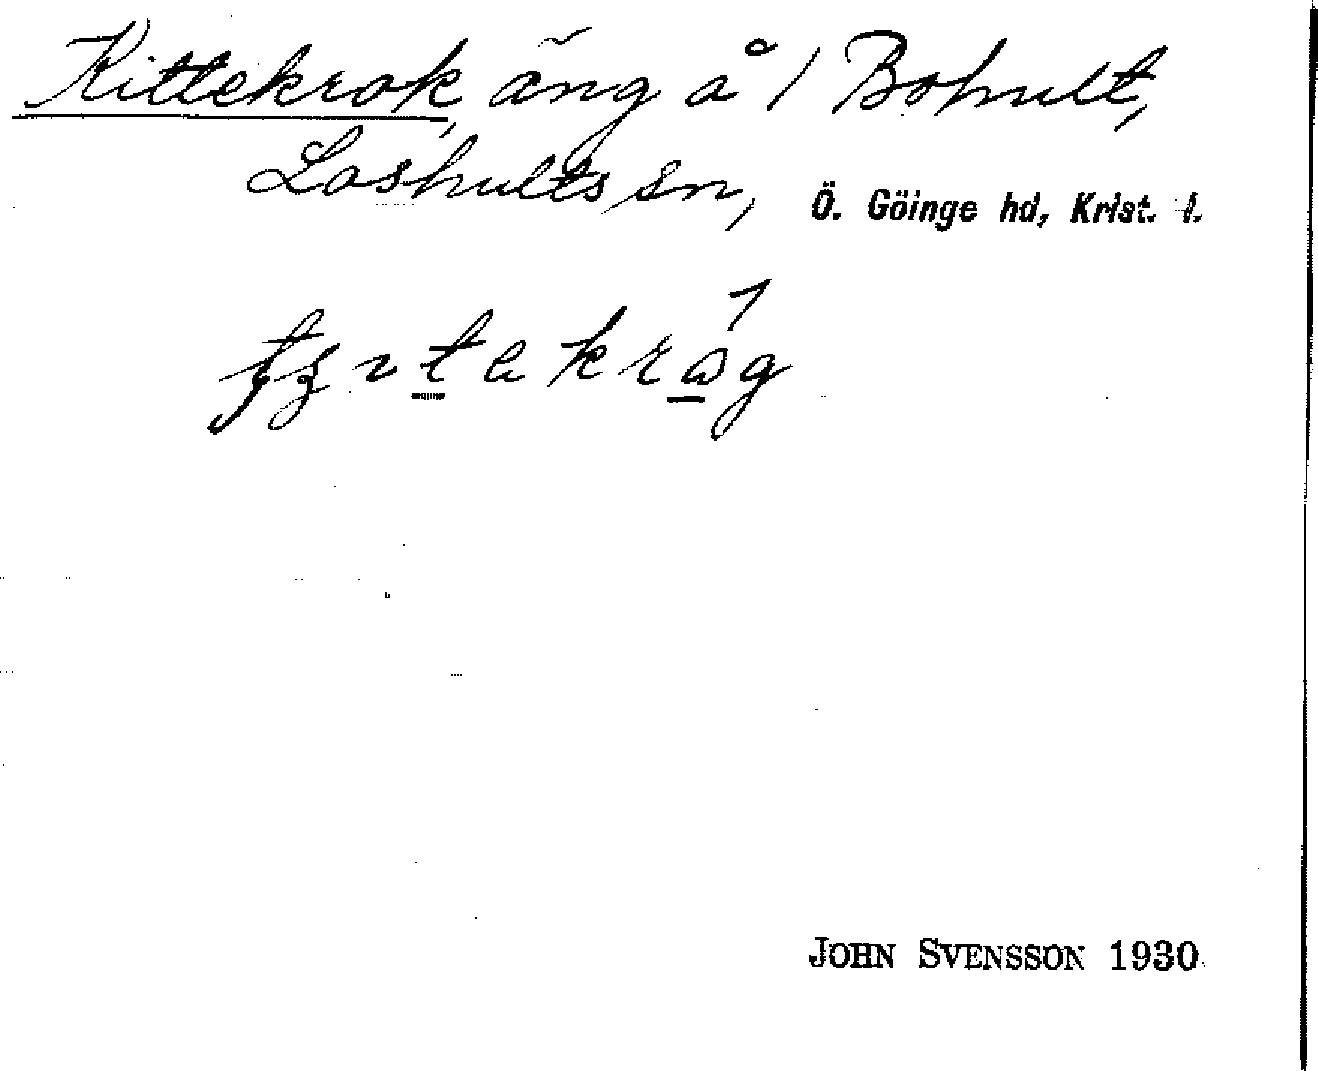 Kittekrok, äng å 1 Bohult,
Loshults sn, Ö. Göinge hd, Krist. l.
JOHN SVENSSON 1930